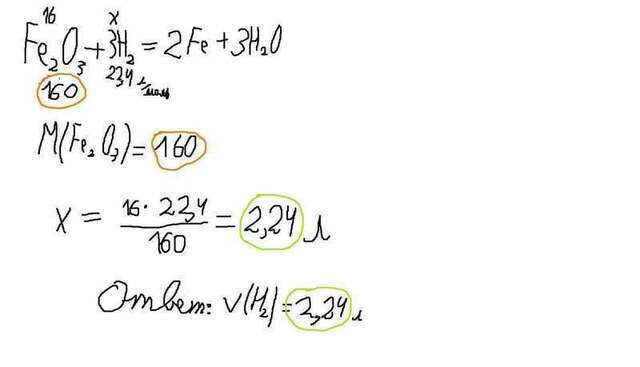 16 x
Fe₂O₃ + 3H₂ = 2Fe + 3H₂O
160 22,4 л/моль
M(Fe₂O₃) = 160
x = 16 · 22,4 / 160 = 2,24 л
Ответ: V(H₂) = 2,24 л